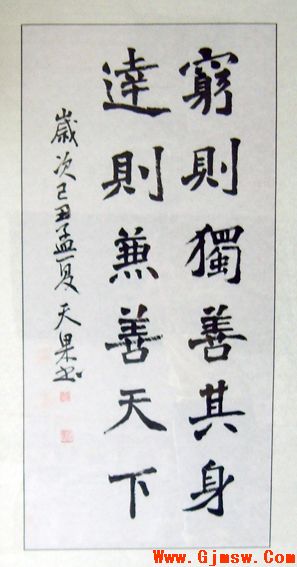 窮則獨善其身
達則兼善天下
歲次己丑孟夏天果书
Www.Gjmsw.Com